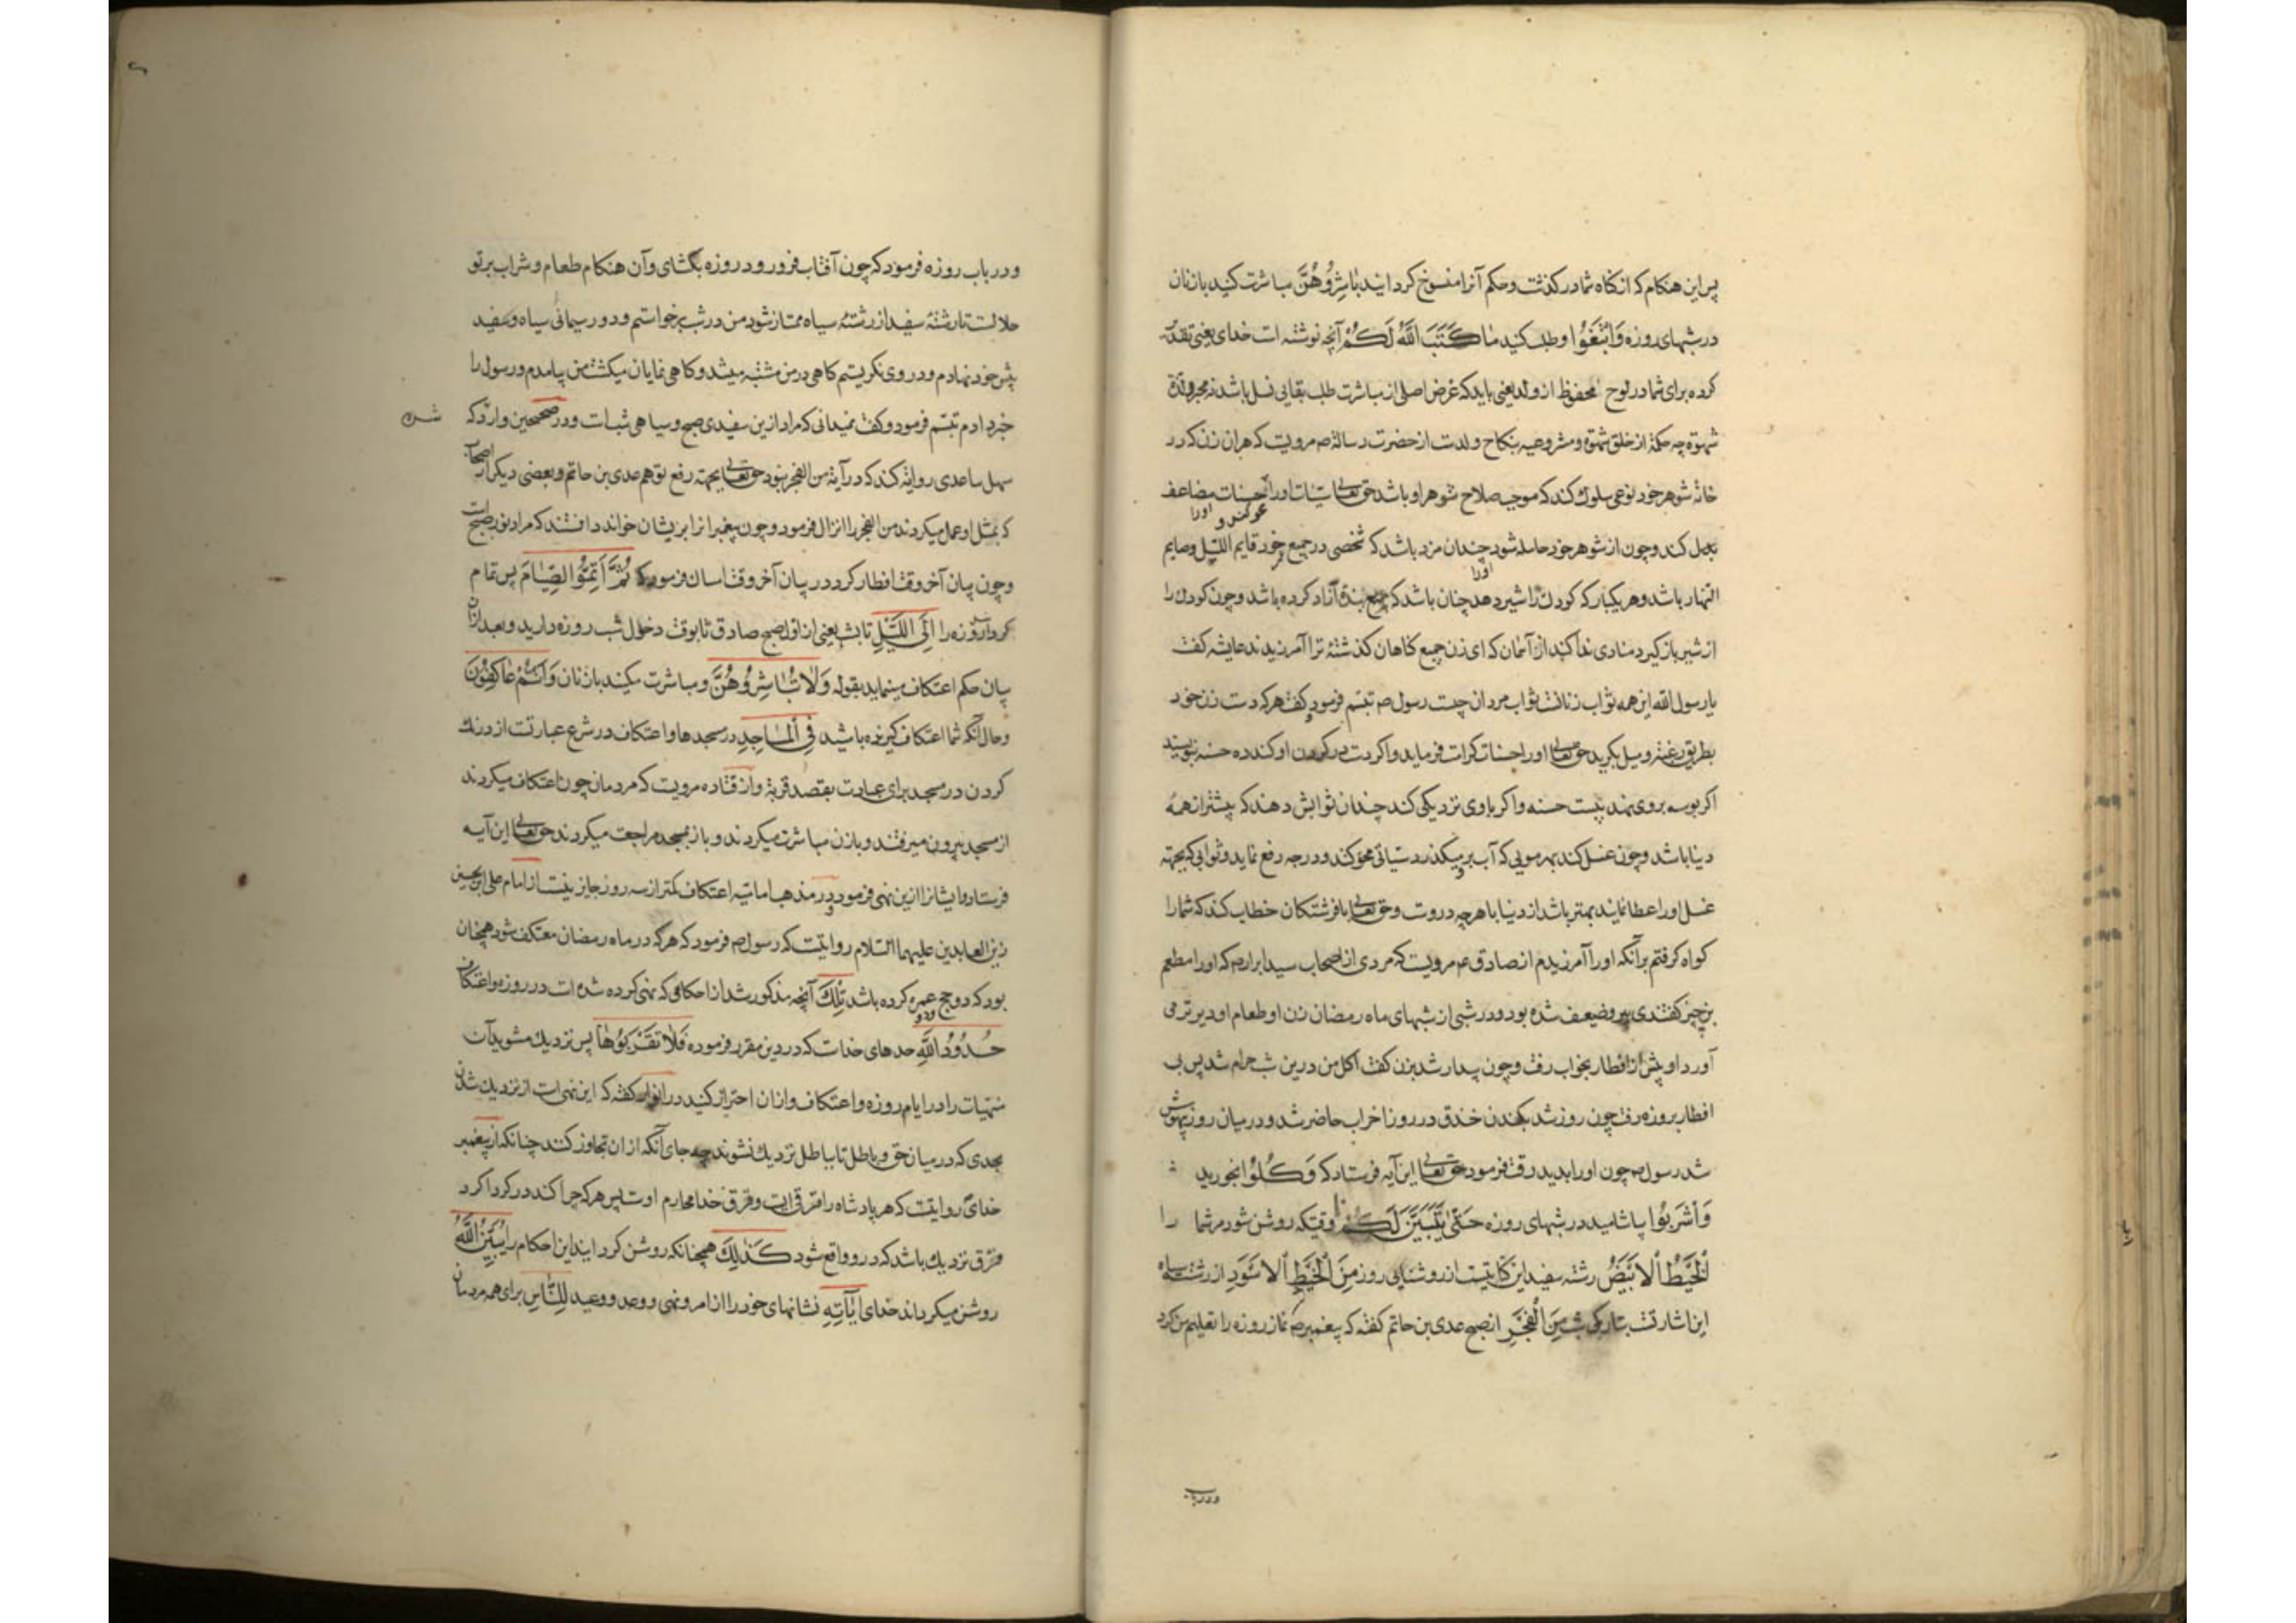 پس این هنکام که از کناه شما درکذشت و حکم آنرا منسوخ کردانید بَاشِرُوهُنَّ مباشرت کنید با زنان
در شبهای روزه وَابْتَغُوا و طلب کنید مَا كَتَبَ اللَّهُ لَكُمْ آنچه نوشته است خدای یعنی تقدیر
کرده برای شما در لوح محفوظ از ولد یعنی باید که غرض اصلی از مباشرت طلب بقای نسل باشد نه مجرد
شهوة چه حکمة از خلق شهوة و مشروعیه بنکاح ولدت از حضرت رسالة ص مرویت که هر آن زن که در
خانهٔ شوهر خود نوعی سلوک کند که موجب صلاح شوهر او باشد حق تعالی سیّات اورا بحسنات مضاعف
بدل کند و چون از شوهر خود حامله شود چندان مزد باشد که شخصی در جمیع عمر خود قایم اللیل و صایم
النهار باشد و هر یکبار که کودک را شیر دهد چنان باشد که بندهٔ آزاد کرده باشد و چون کودک را
از شیر باز کیرد منادی ندا کند از آسمان که ای زن جمیع کناهان کذشتهٔ ترا آمرزیدند عایشه کفت
یا رسول الله این همه ثواب زنانست ثواب مردان چیست رسول ص تبسم فرمود و کفت هر که دست زن خود
بطریق رغبة و میل بکیرد حق تعالی اورا حسنات کرامت فرماید و اکر دست در کردن او کند ده حسنه بنویسند
اکر بوسه بر وی نهد بیست حسنه و اکر با وی نزدیکی کند چندان ثوابش دهند که بیشتر از همهٔ
دنیا باشد و چون غسل کند بهر مویی که آب بر و میکذرد سیّاتی محو کند و درجه رفع نماید و ثوابی که بجهته
غسل اورا عطا نمایند بهتر باشد از دنیا با هر چه دروست و حق تعالی با فرشتکان خطاب کند که شما را
کواه کرفتم بر آنکه اورا آمرزیدم از صادق ع مرویت که مردی از اصحاب سید ابرار ص که اورا مطعم
بن جبیر کفتندی پیر و ضعیف شده بود و در شبی از شبهای ماه رمضان زن او طعام او دیرتر می
آورد او پیش از افطار بخواب رفت و چون بیدار شد بزن کفت اکل من درین شب حرام شد پس بی
افطار بروزه رفت چون روز شد بکندن خندق در روز احزاب حاضر شد و در میان روز بیهوش
شد رسول ص چون اورا بدید رقت فرمود حق تعالی این آیه فرستاد که وَكُلُوا بخورید
وَاشْرَبُوا بیاشامید در شبهای روزه حَتَّى يَتَبَيَّنَ لَكُمُ تا وقتیکه روشن شود مر شما را
الْخَيْطُ الْأَبْيَضُ رشتهٔ سفید این کنایتست از روشنایی روز مِنَ الْخَيْطِ الْأَسْوَدِ از رشتهٔ سیاه
این اشارتست بتاریکی شب مِنَ الْفَجْرِ از صبح عدی بن حاتم کفته که پیغمبر ص نماز روزه را تعلیم من کرد
و در باب
و در باب روزه فرمود که چون آفتاب فرو رود روزه بکشای و آن هنکام طعام و شراب بر تو
حلالست تا رشتهٔ سفید از رشتهٔ سیاه ممتاز شود من در شب برخواستم و دو ریسمانی سیاه و سفید
پیش خود نهادم و در وی نکریستم کاهی در من مشتبه میشد و کاهی نمایان میکشت من بیامدم و رسول را
خبر دادم تبسم فرمود و کفت نمیدانی که مراد ازین سفیدی صبح و سیاهی شبست و در صحیحین وارد که
سهل ساعدی روایة کند که در آیة من الفجر نبود حق تعالی بجهته رفع توهم عدی بن حاتم و بعضی دیکر از اصحاب
که بمثل او عمل میکردند من الفجر را انزال فرمود و چون پیغمبر آنرا بریشان خواند دانستند که مراد نور صبح است
و چون بیان آخر وقت افطار کرد در بیان آخر وقت امساک فرمود که ثُمَّ أَتِمُّوا الصِّيَامَ پس تمام
کردانید روزه را إِلَى اللَّيْلِ تا شب یعنی از اول صبح صادق تا بوقت دخول شب روزه دارید و بعد از آن
بیان حکم اعتکاف مینماید بقوله وَلَا تُبَاشِرُوهُنَّ و مباشرت مکنید با زنان وَأَنْتُمْ عَاكِفُونَ
و حال آنکه شما اعتکاف کیرنده باشید فِي الْمَسَاجِدِ در مسجدها و اعتکاف در شرع عبارتست از درنک
کردن در مسجد برای عبادت بقصد قربة و از قتاده مرویت که مردمان چون اعتکاف میکردند
از مسجد بیرون میرفتند و با زن مباشرت میکردند و باز بمسجد مراجعت میکردند حق تعالی این آیه
فرستاد و ایشانرا ازین نهی فرمود و در مذهب امامیه اعتکاف کمتر از سه روز جایز نیست از امام علی بن الحسین
زین العابدین علیهما السلام روایتست که رسول ص فرمود که هر که در ماه رمضان معتکف شود همچنان
بود که دو حج و دو عمره کرده باشد تِلْكَ آنچه مذکور شد از احکامی که نهی کرده شده است در روزه و اعتکاف
حُدُودُ اللَّهِ حدهای خداست که در دین مقرر فرموده فَلَا تَقْرَبُوهَا پس نزدیک مشوید آن
منهیات را در ایام روزه و اعتکاف و از آن احتراز کنید در انوار کفته که این نهی است از نزدیک شدن
بحدی که در میان حق و باطل تا بباطل نزدیک نشوند چه جای آنکه از آن تجاوز کنند چنانکه از پیغمبر
خدای روایتست که هر پادشاه را قرقی است و قرق خدا محارم اوست پس هر که چرا کند در کرداکرد
قرق نزدیک باشد که درو واقع شود كَذَلِكَ همچنانکه روشن کردانید این احکام را يُبَيِّنُ اللَّهُ
روشن میکرداند خدای آيَاتِهِ نشانهای خود را از امر و نهی و وعد و وعید لِلنَّاسِ برای همه مردمان